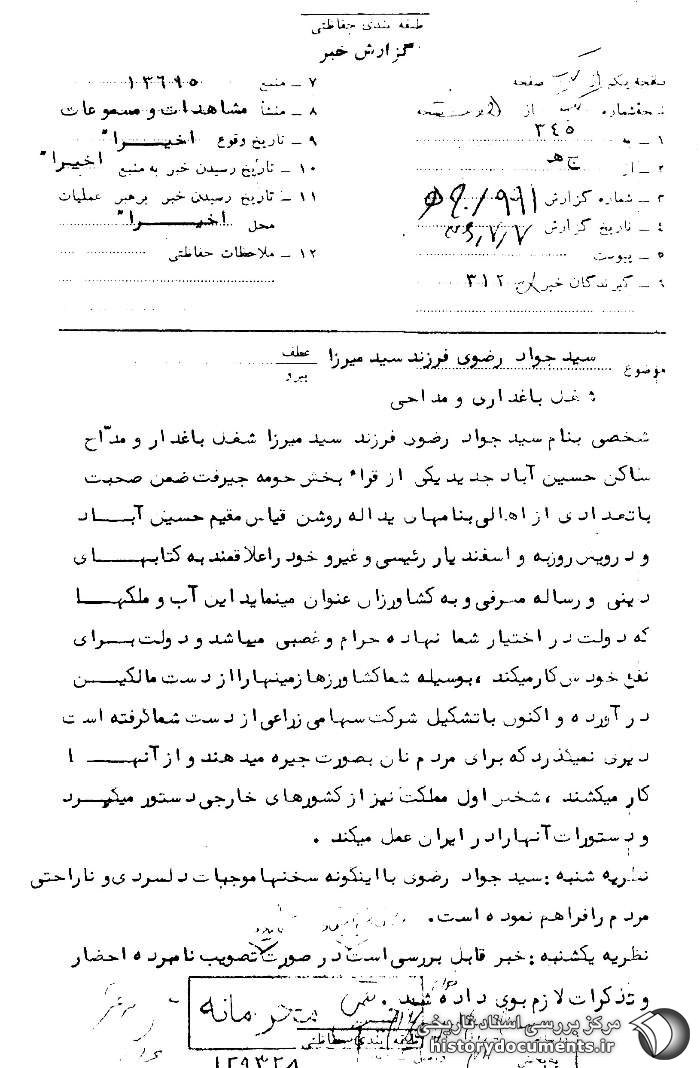 طبقه بندی حفاظتی
گزارش خبر
صفحه یکم از یک صفحه
نسخه شماره یک از نسخه
۱ ـ به ۳٤۵
۲ ـ از ج ه
۳ ـ شماره گزارش
۴ ـ تاریخ گزارش
۵ ـ پیوست
۶ ـ گیرندگان خبر ۳۱۲
۷ ـ منبع ۱۳٦۹۵
۸ ـ منشأ مشاهدات و مسموعات
۹ ـ تاریخ وقوع اخیراً
۱۰ ـ تاریخ رسیدن خبر به منبع اخیراً
۱۱ ـ تاریخ رسیدن خبر برهبر عملیات
محل اخیراً
۱۲ ـ ملاحظات حفاظتی
موضوع سید جواد رضوی فرزند سید میرزا
عطف
پیرو
شغل باغداری و مداحی
شخصی بنام سید جواد رضوی فرزند سید میرزا شغل باغدار و مدّاح
ساکن حسین آباد جدید یکی از قراء بخش حومه جیرفت ضمن صحبت
با تعدادی از اهالی بنامهای یداله روشن قیاس مقیم حسین آباد
و درویس روزبه و اسفند یار رئیسی و غیرو خود را علاقمند به کتابهای
دینی و رساله معرفی و به کشاورزان عنوان مینماید این آب و ملکها
که دولت در اختیار شما نهاده حرام و غصبی میباشد و دولت برای
نفع خودش کار میکند ، بوسیله شما کشاورزها زمینها را از دست مالکین
در آورده و اکنون با تشکیل شرکت سهامی زراعی از دست شما گرفته است
دیری نمیگذرد که برای مردم نان بصورت جیره میدهند و از آنها
کار میکشند ، شخص اول مملکت نیز از کشورهای خارجی دستور میگیرد
و دستورات آنها را در ایران عمل میکند .
نظریه شنبه : سید جواد رضوی با اینگونه سخنها موجبات دلسردی و ناراحتی
مردم را فراهم نموده است.
نظریه یکشنبه : خبر قابل بررسی است در صورت تصویب نامبرده احضار
و تذکرات لازم بوی داده شد .
محرمانه
طبقه بندی حفاظتی
۱۲۹۳۲۸
مرکز بررسی اسناد تاریخی
historydocuments.ir